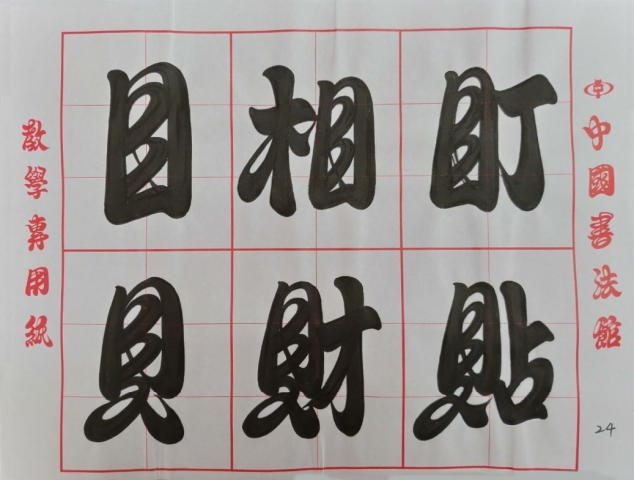 目 相 盯
貝 財 貼
中國書法館
教學專用紙
24